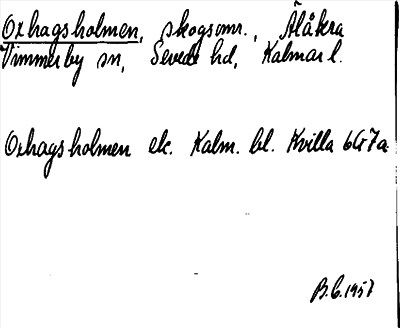 Oxhagsholmen, skogsomr., Älåkra
Vimmerby sn, Sevede hd, Kalmar l.
Oxhagsholmen ek. Kalm. bl. Kvilla 6G7a
B.C. 1957